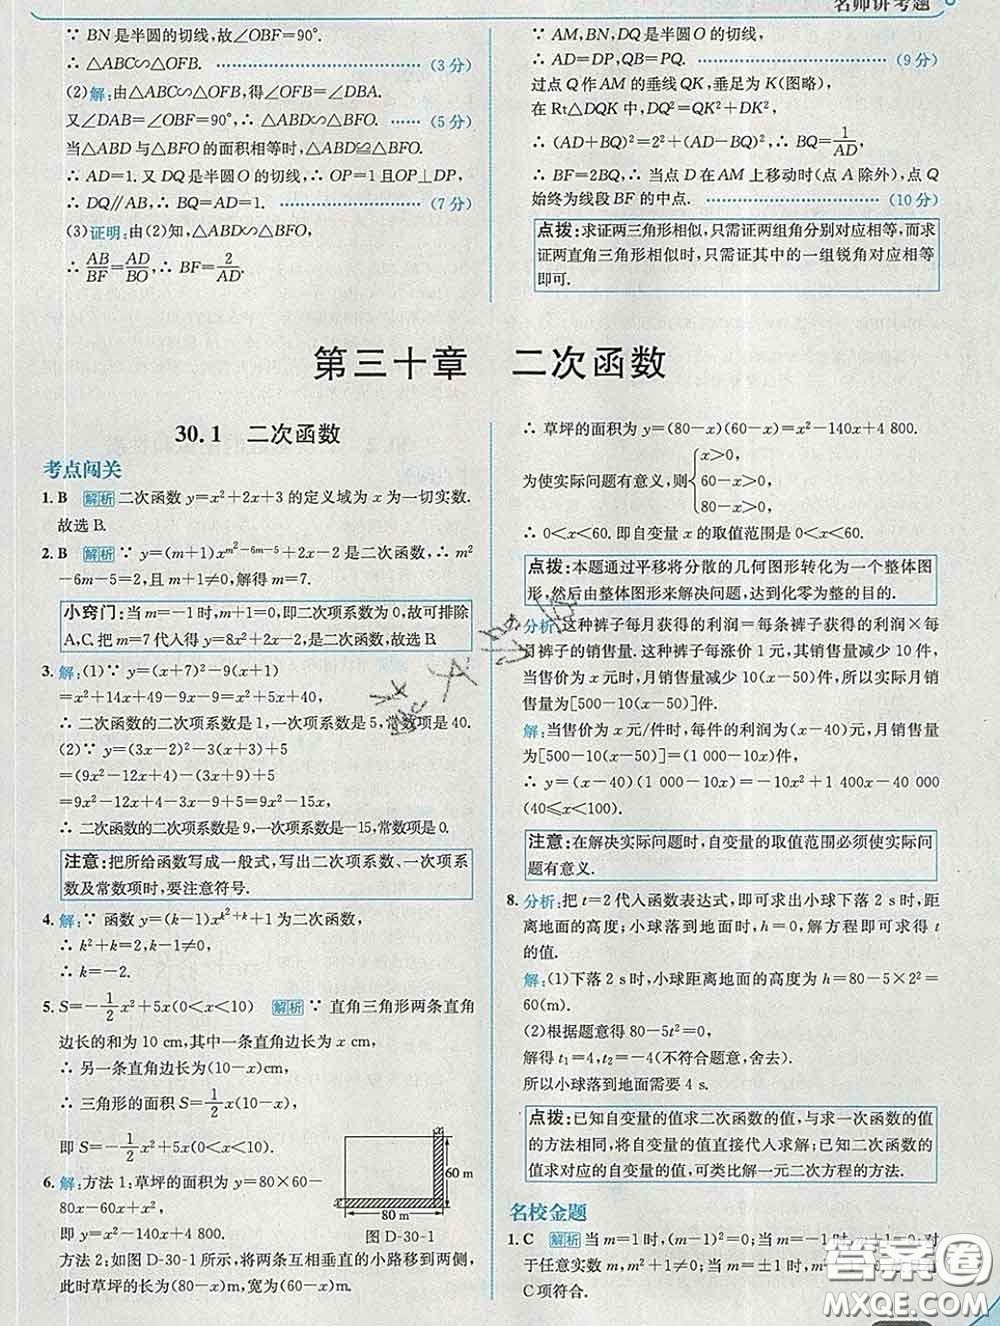 名师讲考题
∵ BN是半圆的切线,故∠OBF=90°.
∴ △ABC∽△OFB. ……(3分)
(2)解:由△ABC∽△OFB,得∠OFB=∠DBA.
又∠DAB=∠OBF=90°,∴ △ABD∽△BFO. ……(5分)
当△ABD与△BFO的面积相等时,△ABD≌△BFO.
∴ AD=1. 又DQ是半圆O的切线,∴ OP=1且OP⊥DP,
∴ DQ∥AB,∴ BQ=AD=1. ……(7分)
(3)证明:由(2)知,△ABD∽△BFO,
∴ AB/BF=AD/BO,∴ BF=2/AD.
∵ AM,BN,DQ是半圆O的切线,
∴ AD=DP,QB=PQ. ……(9分)
过点Q作AM的垂线QK,垂足为K(图略),
在Rt△DQK中,DQ²=QK²+DK²,
∴ (AD+BQ)²=2²+(AD−BQ)²,∴ BQ=1/AD,
∴ BF=2BQ,∴ 当点D在AM上移动时(点A除外),点Q
始终为线段BF的中点. ……(10分)
点拨:求证两三角形相似,只需证两组角分别对应相等,而求
证两直角三角形相似时,只需证其中的一组锐角对应相等
即可.
第三十章 二次函数
30.1 二次函数
考点闯关
1. B 解析 二次函数y=x²+2x+3的定义域为x为一切实数.
故选B.
2. B 解析 ∵ y=(m+1)x^(m²−6m−5)+2x−2是二次函数,∴ m²
−6m−5=2,且m+1≠0,解得m=7.
小窍门:当m=−1时,m+1=0,即二次项系数为0,故可排除
A,C.把m=7代入得y=8x²+2x−2,是二次函数,故选B.
3. 解:(1)∵ y=(x+7)²−9(x+1)
=x²+14x+49−9x−9=x²+5x+40,
∴ 二次函数的二次项系数是1,一次项系数是5,常数项是40.
(2)∵ y=(3x−2)²−(3x+9)+5
=(9x²−12x+4)−(3x+9)+5
=9x²−12x+4−3x−9+5=9x²−15x,
∴ 二次函数的二次项系数是9,一次项系数是−15,常数项是0.
注意:把所给函数写成一般式,写出二次项系数、一次项系
数及常数项时,要注意符号.
4. 解:∵ 函数y=(k−1)x^(k²+k)+1为二次函数,
∴ k²+k=2,k−1≠0,
∴ k=−2.
5. S=−1/2x²+5x(0<x<10) 解析 ∵ 直角三角形两条直角
边长的和为10 cm,其中一条直角边长为x cm,
∴ 另一条直角边长为(10−x)cm.
∴ 三角形的面积S=1/2x(10−x).
即S=−1/2x²+5x(0<x<10).
6. 解:方法1:草坪的面积为y=80×60−
80x−60x+x²,
即y=x²−140x+4 800.
60 m
80 m
图D-30-1
方法2:如图D-30-1所示,将两条互相垂直的小路移到两侧,
此时草坪的长为(80−x)m,宽为(60−x)m.
∴ 草坪的面积为y=(80−x)(60−x)=x²−140x+4 800.
为使实际问题有意义,则{x>0,
60−x>0,
80−x>0,
∴ 0<x<60. 即自变量x的取值范围是0<x<60.
点拨:本题通过平移将分散的几何图形转化为一个整体图
形,然后由整体图形来解决问题,达到化零为整的目的.
分析:这种裤子每月获得的利润=每条裤子获得的利润×每
月裤子的销售量. 这种裤子每涨价1元,其销售量减少10件,
当售价为x元时,月销售量减少10(x−50)件,所以实际月销
售量为[500−10(x−50)]件.
解:当售价为x元/件时,每件的利润为(x−40)元,月销售量
为[500−10(x−50)]=(1 000−10x)件,
∴ y=(x−40)(1 000−10x)=−10x²+1 400x−40 000
(40≤x<100).
注意:在解决实际问题时,自变量的取值范围必须使实际问
题有意义.
8. 分析:把t=2代入函数表达式,即可求出小球下落2 s时,距
离地面的高度;小球落到地面时,h=0,解方程即可求得t
的值.
解:(1)下落2 s时,小球距离地面的高度为h=80−5×2²=
60(m).
(2)根据题意得80−5t²=0,
解得t₁=4,t₂=−4(不符合题意,舍去).
所以小球落到地面需要4 s.
点拨:已知自变量的值求二次函数的值,与求一次函数的值
的方法相同,将自变量的值直接代入求解;已知二次函数的
值求对应的自变量的值,可类比解一元二次方程的方法.
名校金题
1. C 解析 当m=1时,(m−1)²=0;当m=−1时,
对于任意实数m,m²+1≠0;当m=±1时,
C项符合.
答案圈
MXQE.COM